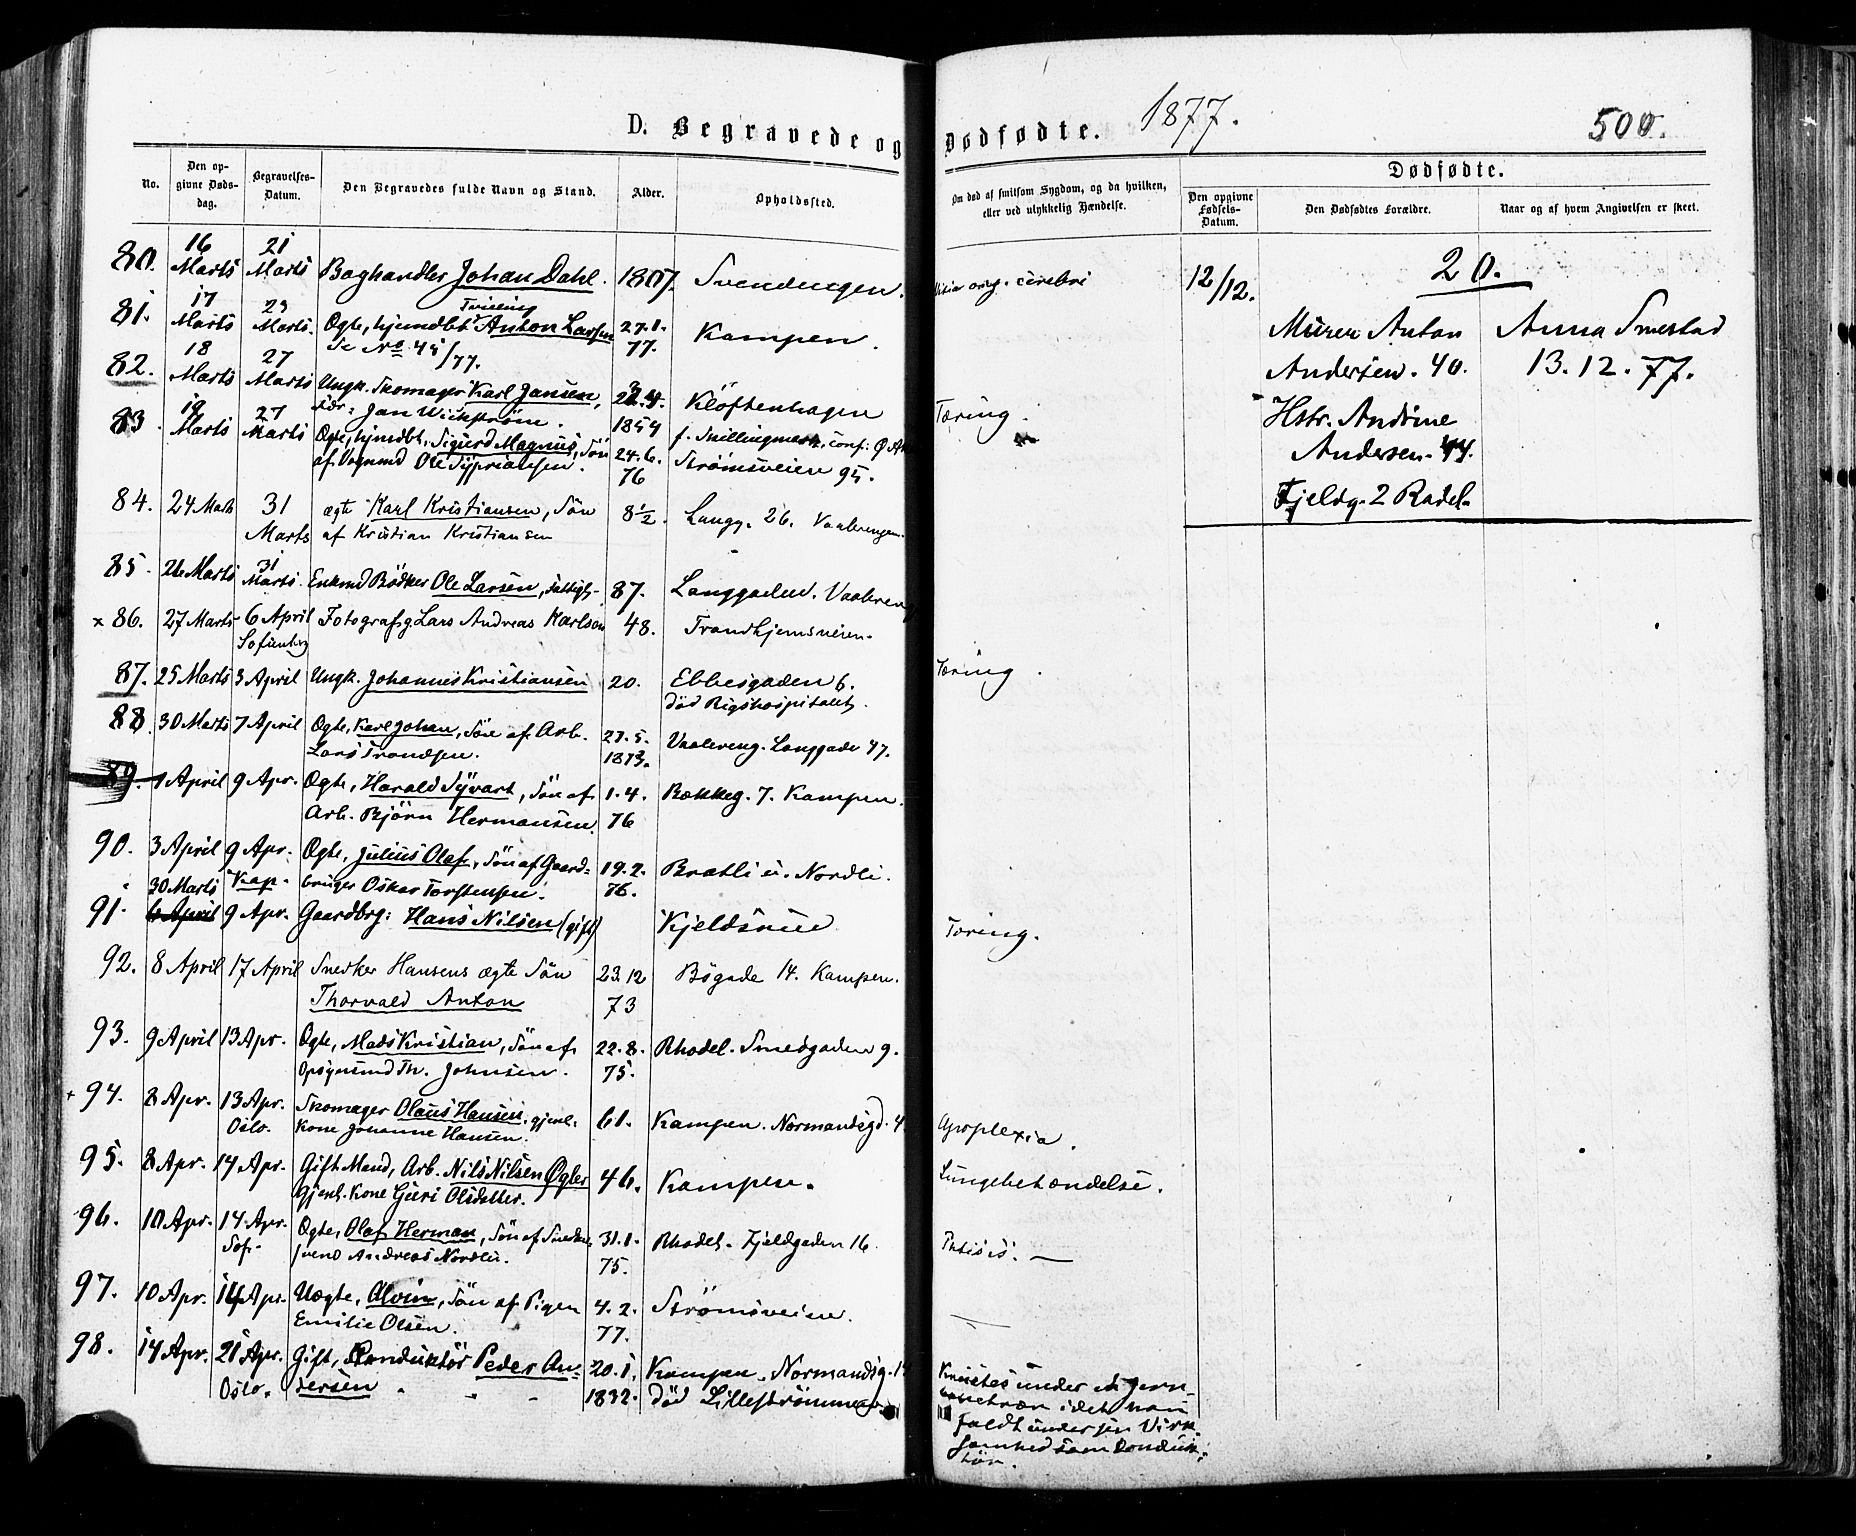 D. Begravede og Dødfødte. 1877. 500.
No.
Den opgivne Dødsdag.
Begravelses-Datum.
Den Begravedes fulde Navn og Stand.
Alder.
Opholdssted.
Om død af smitsom Sygdom, og da hvilken, eller ved ulykkelig Hændelse.
Dødfødte.
Den opgivne Fødsels-Datum.
Den Dødfødtes Forældre.
Naar og af hvem Angivelsen er skeet.
80. 16 Marts 21 Marts Boghandler Johan Dahl. 1807. Svendengen. cerebri
81. 17 Marts 23 Marts. Ægte, hjemdbt Tvilling Anton Larsen 27.1. 77. Kampen.
Se No 45/77.
82. 18 Marts 27 Marts Ungk. Skomager Karl Jansen, 1854 Kløftenhagen Tæring.
Fdr: Jan Wickstrøm. f.
83. 19 Marts 27 Marts Ægte, hjmdbt. Sigurd Magnus, Søn 24.6. 76 Strømsveien 95.
af Vognmd Ole Sypriansen.
84. 24 Mats 31 Marts ægte Karl Kristiansen, Søn 8 1/2. Langg. 26. Vaalerengen.
af Kristian Kristiansen
85. 26 Marts 31 Marts. Enkemd Bødker Ole Larsen, Fattigl- 87. Langgaden. Vaalereng
x 86. 27 Marts 6 April Fotograf g Lars Andreas Karlson 48. Trondhjemsveien-
Sofienberg
87. 25 Marts 3 April Ungk. Johannes Kristiansen 20. Ebbesgaden 6. Tæring.
død Rigshospitalet,
88. 30 Marts 7 April Ægte, Karl Johan, Søn af Arb. 27.5. 1873. Vaalereng. Langgade 47.
Lars Trondsen.
89. 1 April 9 Apr. Ægte, Harald Syvart, Søn af 1.4. 76 Bækkeg. 7. Kampen.
Arb. Bjørn Hermansen.
90. 3 April 9 Apr. Ægte, Julius Olaf, Søn af Gaard- 19.2. 76. Bratli u. Nordli.
Kap. bruger Oskar Torstensen.
91. 30 Marts 6 April 9 Apr. Gaardbrg: Hans Nilsen (gift) Kjeldsrud Tæring.
92. 8 April 17 April Snedker Hansens ægte Søn 23.12 73 Bøgade 14. Kampen.
Thorvald Anton
93. 9 April 13 Apr. Ægte, Mads Kristian, Søn af 22.8. 75. Rhodel. Smedgaden 9.
Opsynsmd Th. Johnsen.
+ 94. 8 Apr. 13 Apr. Skomager Olaus Hansen, gjenl. 61. Kampen. Normandsgd. 4. Apoplexia.
Oslo. Kone Johanne Hansen.
95. 8 Apr. 14 Apr. Gift Mand, Arb. Nils Nilsen Øgler 46. Kampen. Lungebetændelse.
gjenl. Kone Guri Olsdatter.
96. 10 Apr. 14 Apr. Ægte, Olaf Herman, Søn af Snedker 31.1. 75. Rhodel. Fjeldgaden 16. Phtisis. —
Sof. svend Andreas Nordlie.
97. 10 Apr. 14 Apr. Uægte, Alvin, Søn af Pigen 4.2. 77. Strømsveien. —
Emilie Olsen.
98. 14 Apr. 21 Apr. Gift, Konduktør Peder An- 20.1. 1832. Kampen. Normandsg. 14
Oslo. dersen død Lillestrømmen
Knustes under et Jern-
idet han
faldt under sin Virk-
somhed som Konduk-
tør.
12/12.
20.
Murer Anton
Andersen. 40.
Hstr. Andrine
Andersen. 44.
Fjeldg. 2 Rodel.
Anna Smestad
13.12.77.